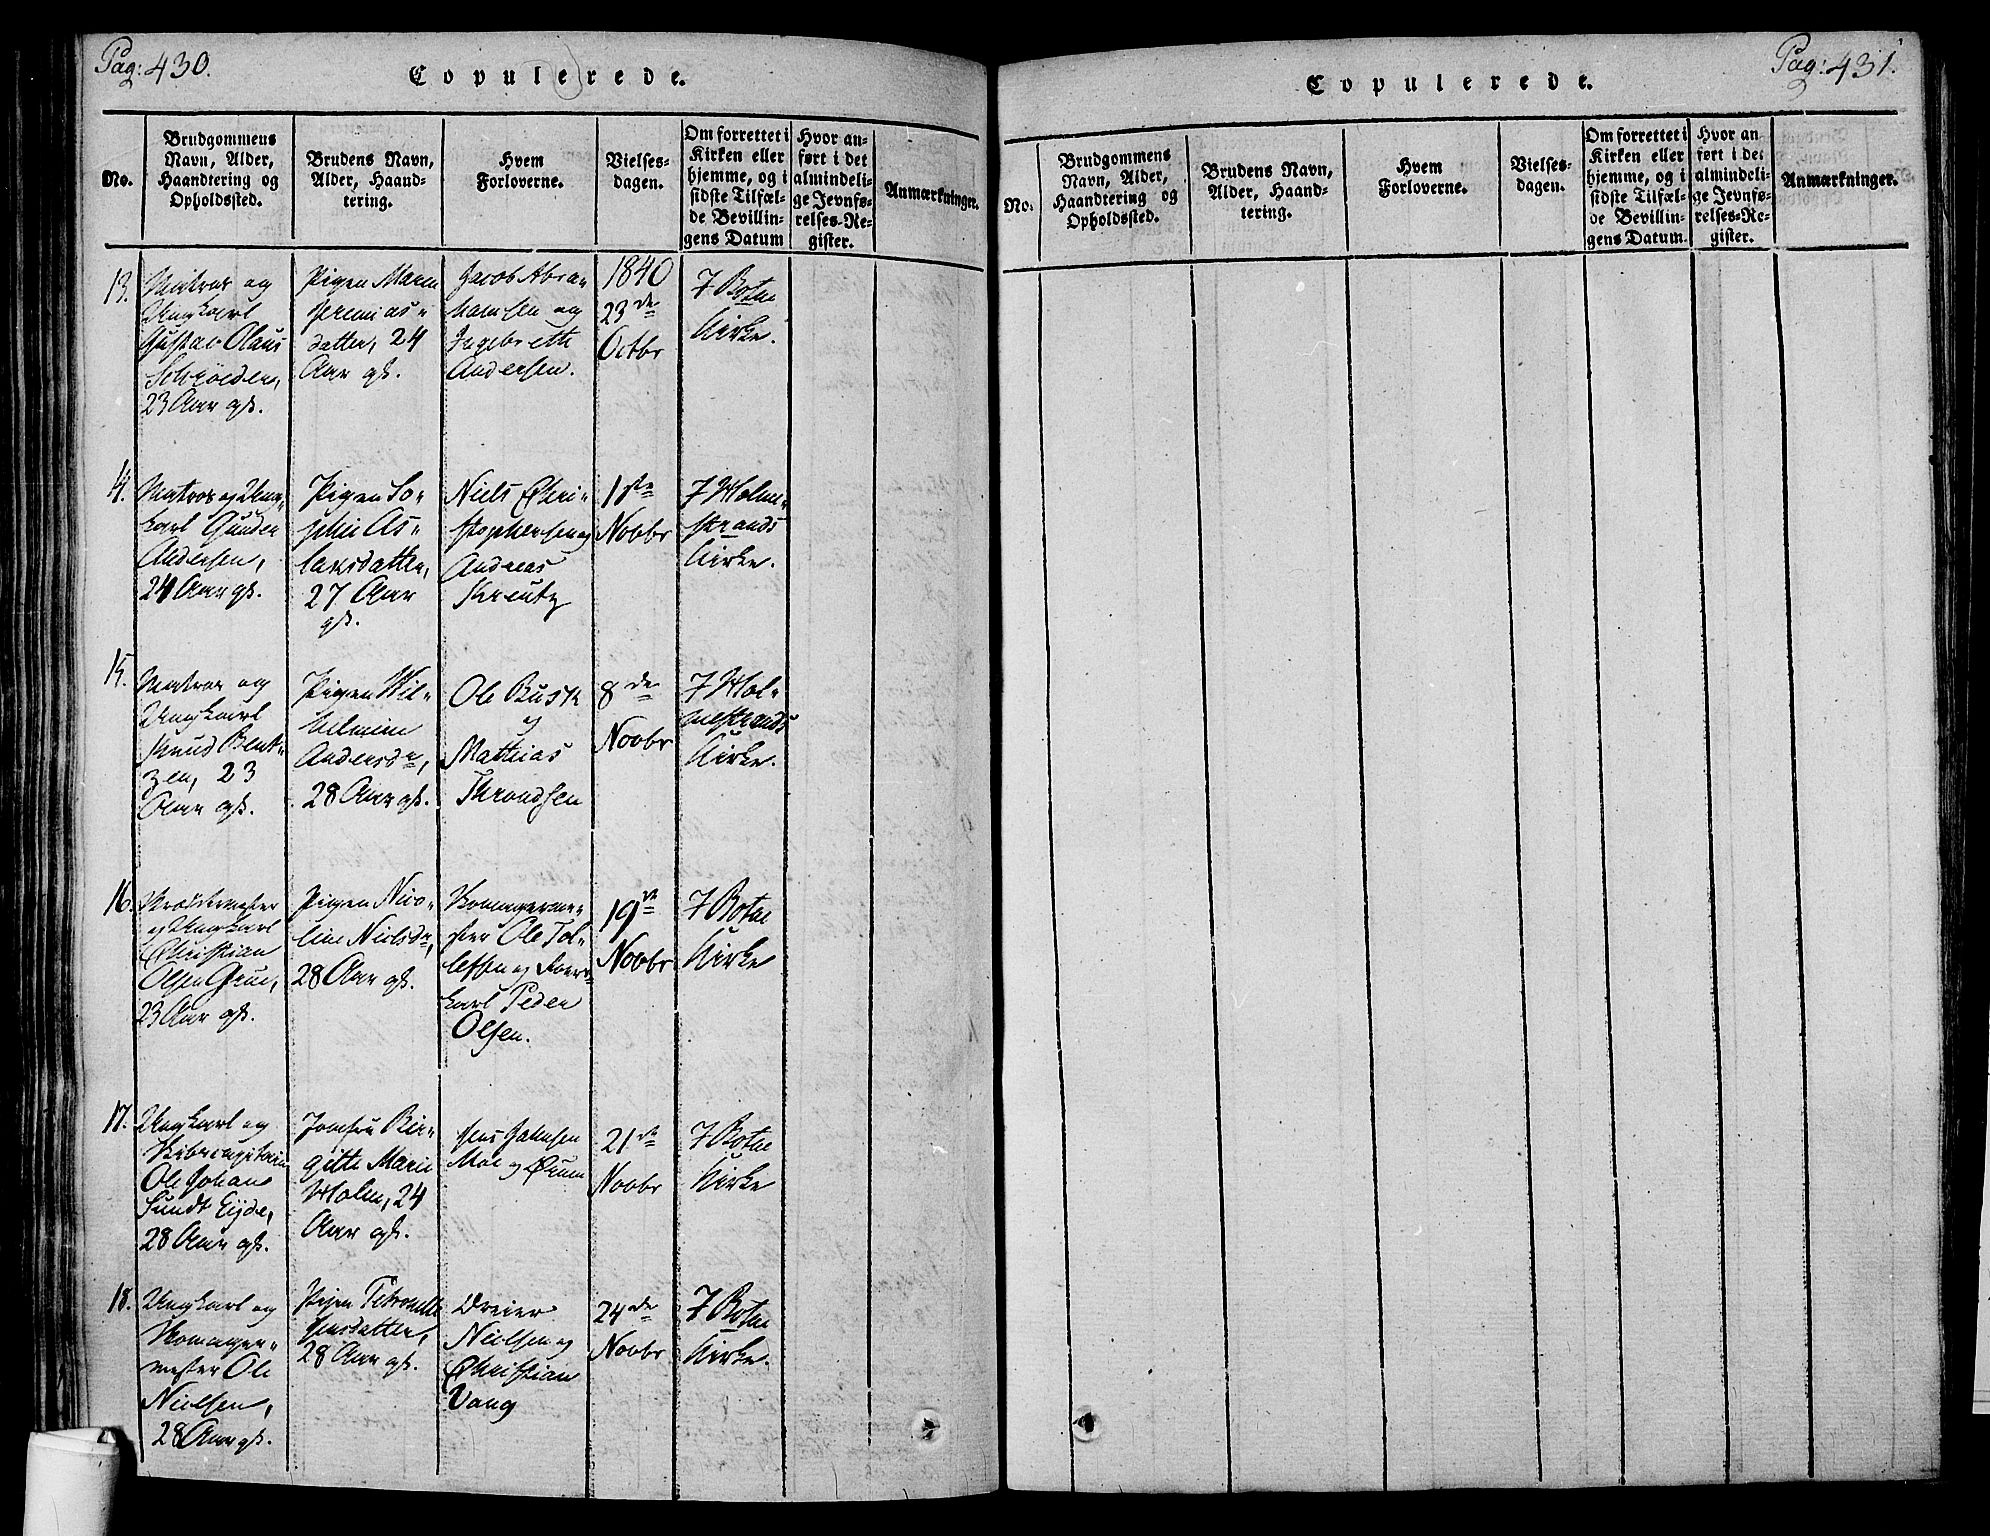 Pag: 430.
Copulerede.
No.
Brudgommens
Navn, Alder,
Haandtering og
Opholdssted.
Brudens Navn,
Alder, Haand-
tering.
Hvem
Forloverne.
Vielses-
dagen.
Om forrettet i
Kirken eller
hjemme, og i
sidste Tilfæl-
de Bevillin-
gens Datum
Hvor an-
ført i det
almindeli-
ge Jevnfø-
relses-Re-
gister.
Anmærkninger.
13.
Matros og
Ungkarl
Gustav Olaus
Schrøder,
23 Aar gl.
Pigen Maren
Jeremias-
datter, 24
Aar gl.
Jacob Abra-
hamsen og
Ingebrett
Andersen.
1840
23de
Octbr
I Botne
Kirke.
14.
Matros og Ung-
karl Gunder
Andersen,
24 Aar gl.
Pigen So-
phie As-
laksdatter,
27 Aar
gl.
Niels Chri-
stophersen og
Andreas
Kreutz
1ste
Novbr
I Holme-
strands
Kirke.
15.
Matros og
Ungkarl
Knud Bent-
zen, 23
Aar gl.
Pigen Wil-
helmine
Andersdr,
28 Aar gl.
Ole Busk
og
Mathias
Throndsen
8de
Novbr
I Hol-
mestrands
Kirke.
16.
og Ungkarl
Christian
Olsen Grue,
23 Aar gl.
Pigen Nico-
line Nielsdr,
28 Aar gl.
Kommagerme-
ster Ole Tol-
lefsen og
karl Peder
Olsen.
19de
Novbr
I Botne
Kirke
17.
Ungkarl og
Skibscapitain
Ole Johan
Sundt Eyde,
28 Aar gl.
Jomfru Bir-
gitte Marie
Holm, 24
Aar gl.
Jens Jahnsen
Moe og Ørum
21de
Novbr
I Botne
Kirke
18.
Ungkarl og
Kommager-
mester Ole
Nielsen,
28 Aar gl.
Pigen Petronelle
Jensdatter,
28 Aar gl.
Dreier
Nielsen og
Christian
Vang
24de
Novbr
I Botne
Kirke.
Pag: 431.
Copulerede.
No.
Brudgommens
Navn, Alder,
Haandtering og
Opholdssted.
Brudens Navn,
Alder, Haand-
tering.
Hvem
Forloverne.
Vielses-
dagen.
Om forrettet i
Kirken eller
hjemme, og i
sidste Tilfæl-
de Bevillin-
gens Datum
Hvor an
ført i det
almindeli-
ge Jevnfø-
relses-Re-
gister.
Anmærkninger.